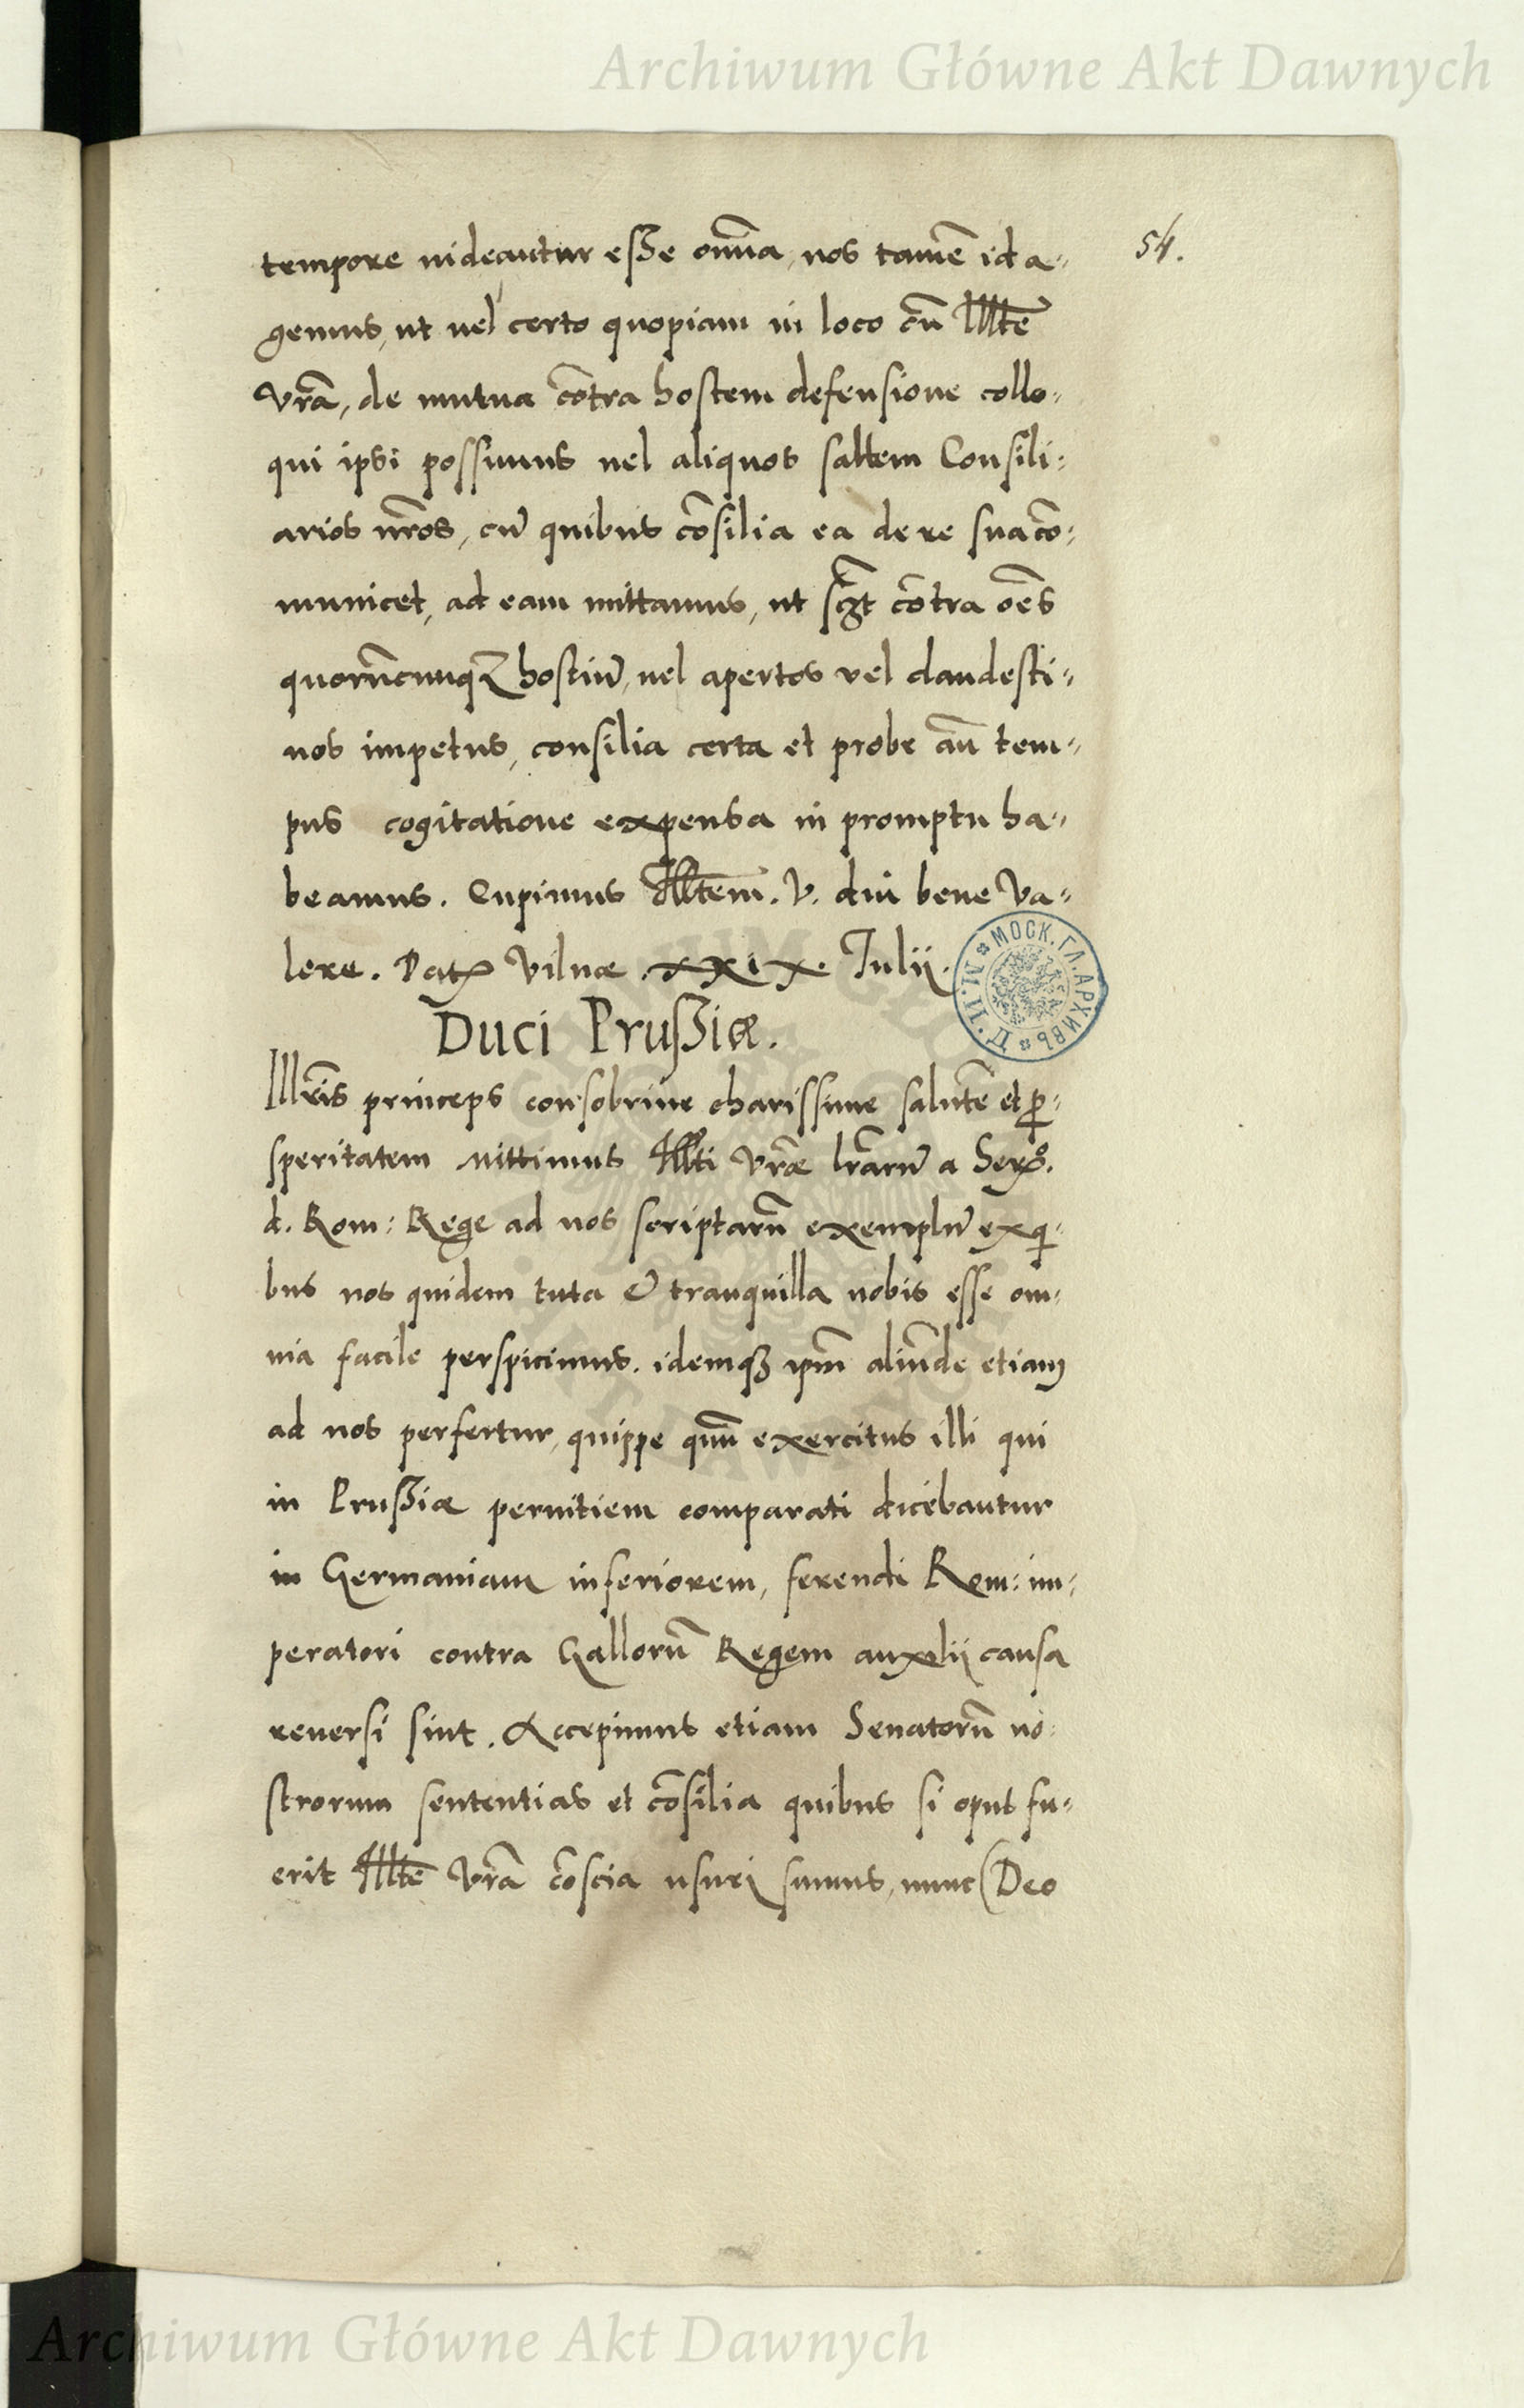 Archiwum Główne Akt Dawnych
54.
tempore uideantur eße om̃ia, nos tamẽ id a-
gemus, ut uel certo quopiam in loco cũ Illtẽ
Vrã, de mutua cõtra hostem defensione collo-
qui ipsi possimus uel aliquos saltem Consili-
arios nr̃os, cũ quibus cõsilia ea de re sua cõ-
municet, ad eam mittamus, ut cõtra oẽs
quorũcunqꝫ hostiũ, uel apertos vel clandesti-
nos impetus, consilia certa et probe añ tem-
pus cogitatione expensa in promptu ha-
beamus. Cupimus Illtẽm. V. diu bene Va-
lere. Datꝭ Vilnæ .xxix. Julij.
МОСК. ГЛ. АРХИВЪ
Duci Prußiæ.
Illr̃is princeps consobrine charissime salutẽ et ꝓ-
speritatem Mittimus Illti Vr̃æ lr̃arũ a Serº.
d. Rom: Rege ad nos scriptarũ exemplũ ex q-
bus nos quidem tuta & tranquilla nobis esse om-
nia facile perspicimus. idemqꝫ ip̃m aliũde etiam
ad nos perfertur, quippe quũ exercitus illi qui
in Prußiæ pernitiem comparati dicebantur
in Germaniam inferiorem, ferendi Rom: im-
peratori contra Gallorũ Regem auxilij causa
reuersi sint. Accepimus etiam Senatorũ no-
strorum sententias et cõsilia quibus si opus fu-
erit Illtẽ Vrã cõscia usuri sumus, nunc (Deo
Archiwum Główne Akt Dawnych